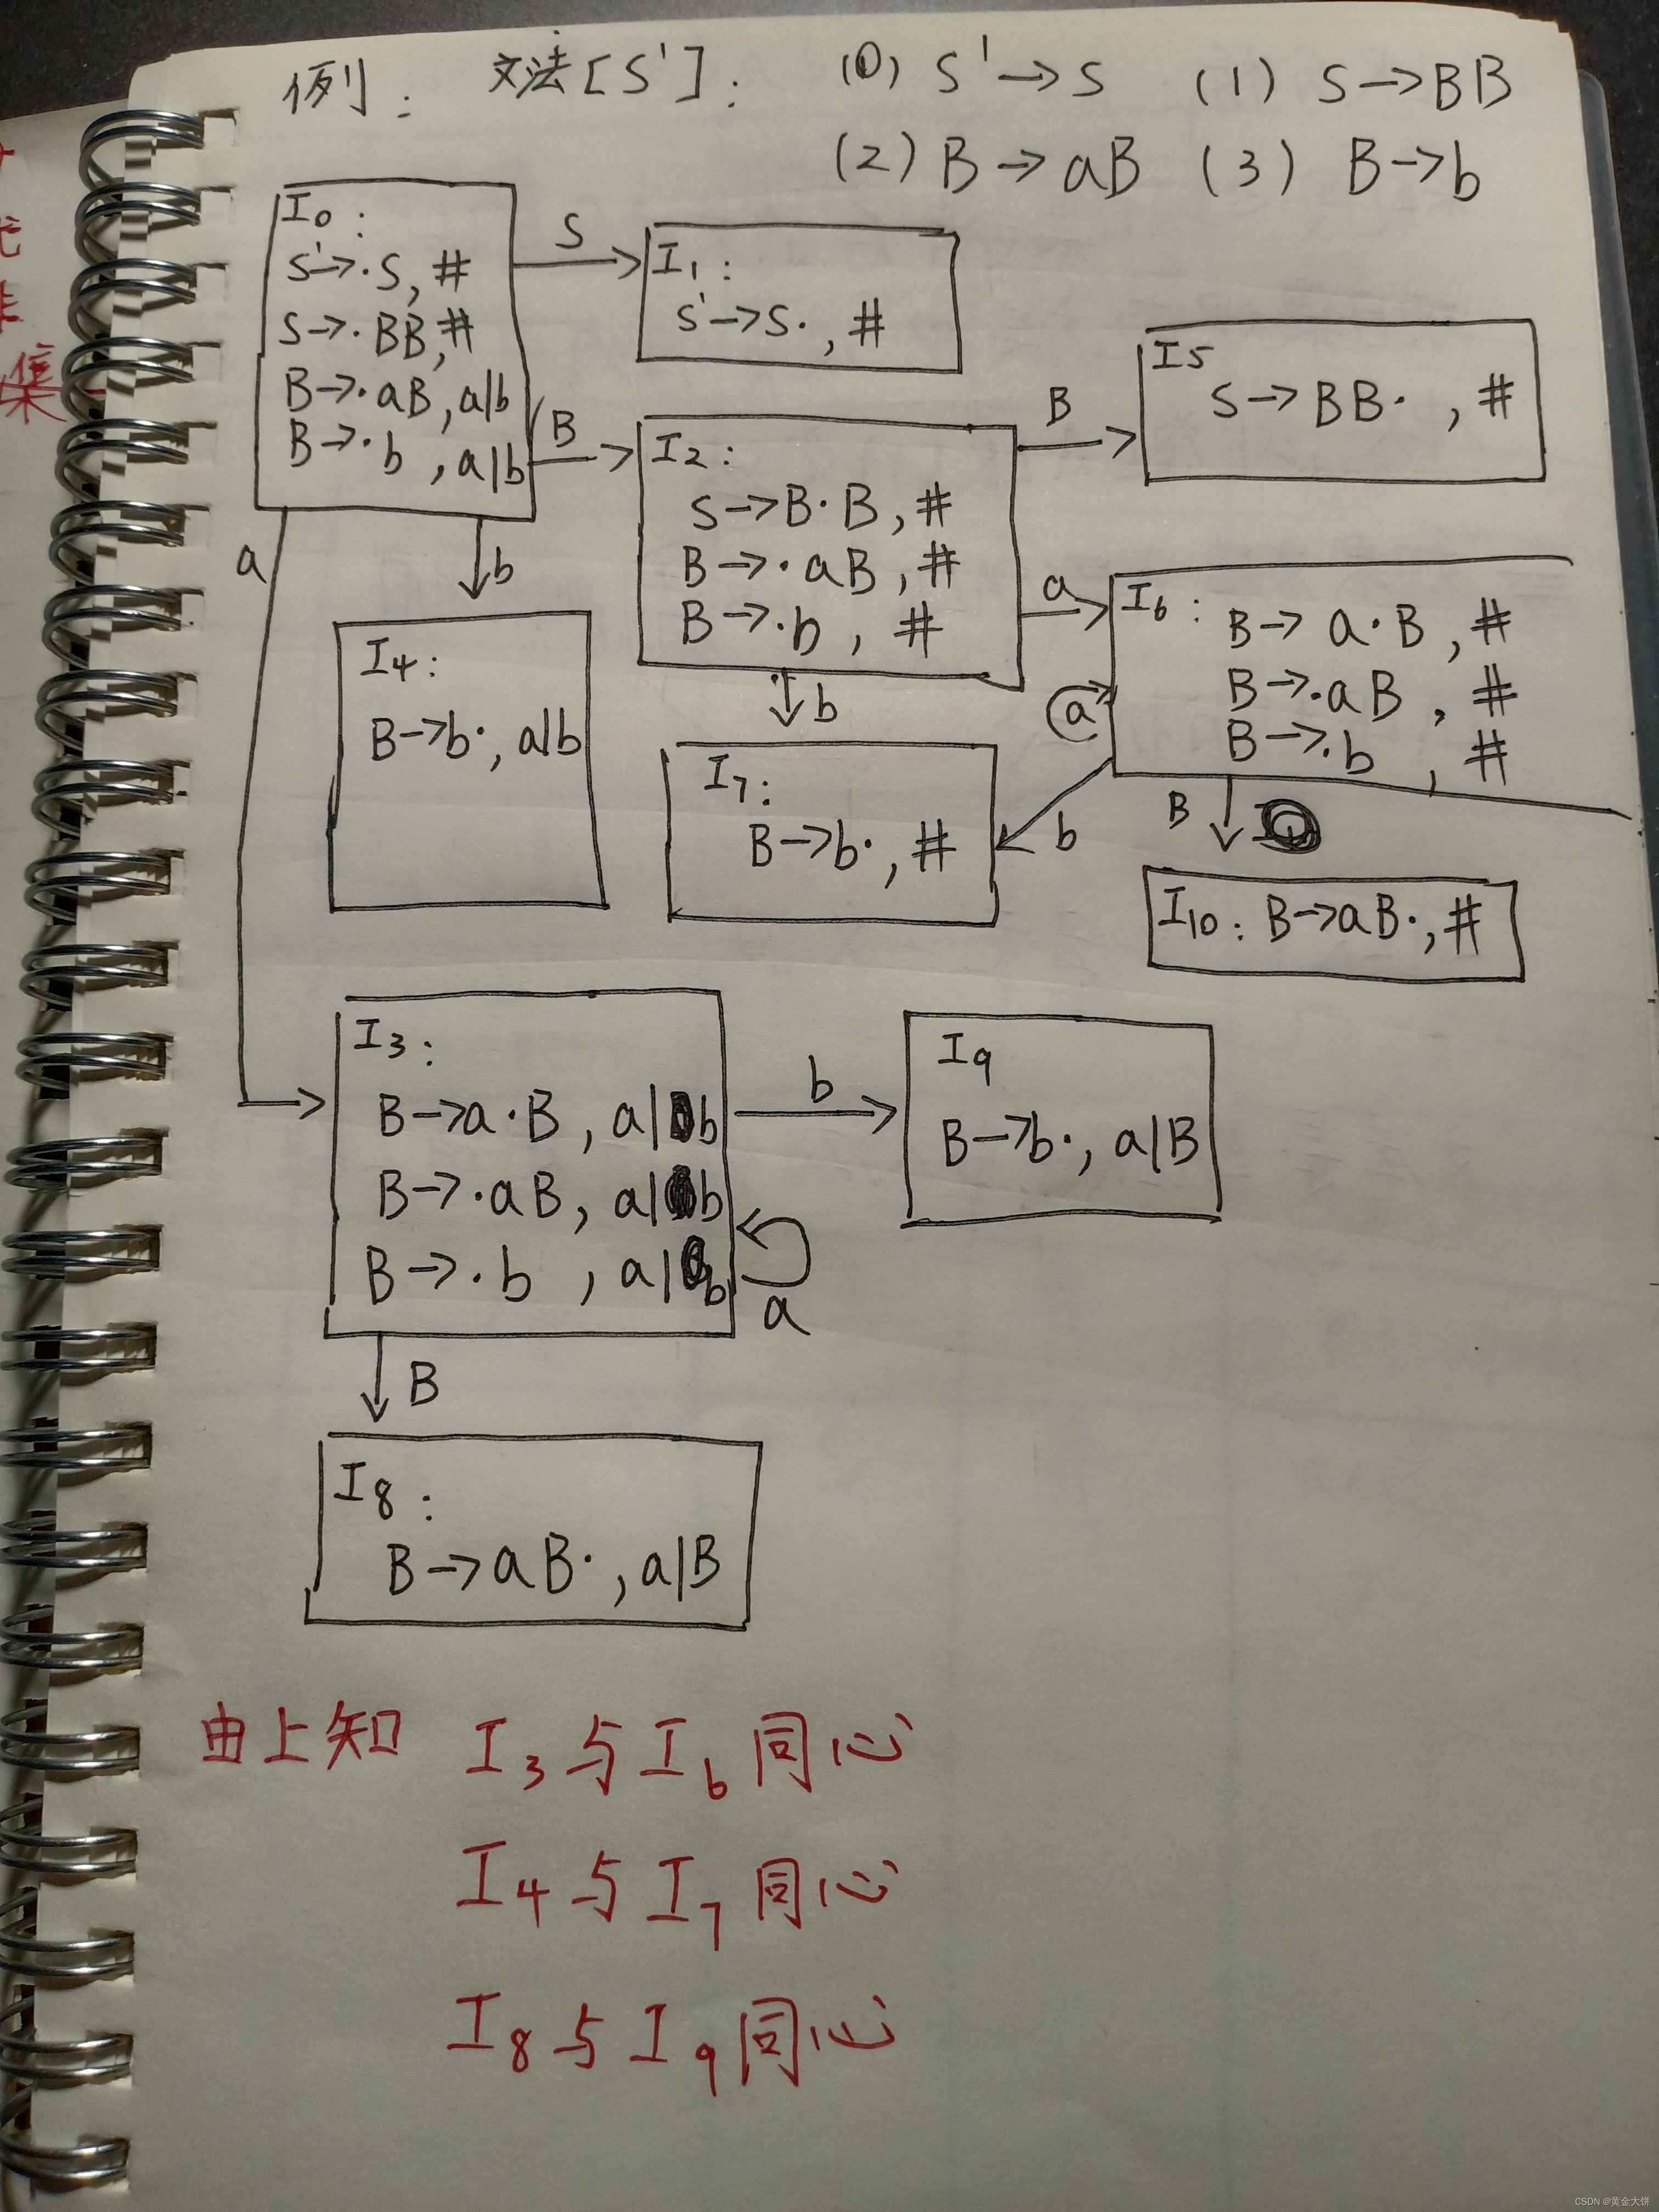 例: 文法[S']: (0) S'→S (1) S→BB
(2) B→aB (3) B→b
I0:
S'→·S, #
S→·BB, #
B→·aB, a|b
B→·b, a|b
S
I1:
S'→S·, #
B
I2:
S→B·B, #
B→·aB, #
B→·b, #
B
I5
S→BB·, #
a
I6: B→a·B, #
B→·aB, #
B→·b, #
a
b
B
a
b
I4:
B→b·, a|b
b
I7:
B→b·, #
I10: B→aB·, #
I3:
B→a·B, a|b
B→·aB, a|b
B→·b, a|b
b
a
I9
B→b·, a|B
B
I8:
B→aB·, a|B
由上知 I3与I6同心
I4与I7同心
I8与I9同心
集
CSDN @黄金大饼